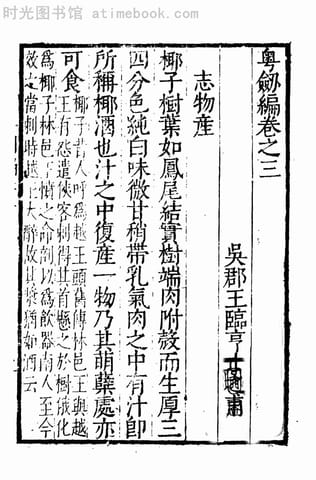 时光图书馆 - atimebook.com
粵劒編卷之三
吳郡王臨亨甫
志物産
椰子樹葉如鳳尾結實樹端肉附殻而生厚三
四分色純白味微甘稍帶乳氣肉之中有汁卽
所稱椰酒也汁之中復産一物乃其萌蘗處亦
可食
椰子昔人呼爲越王頭舊傳林邑王與越
王有怨遣俠客刺得其首懸之於樹俄化
爲椰子林邑王憤之命剖以爲飮器南人至今
效之當刺時越王大醉故其漿猶如酒云